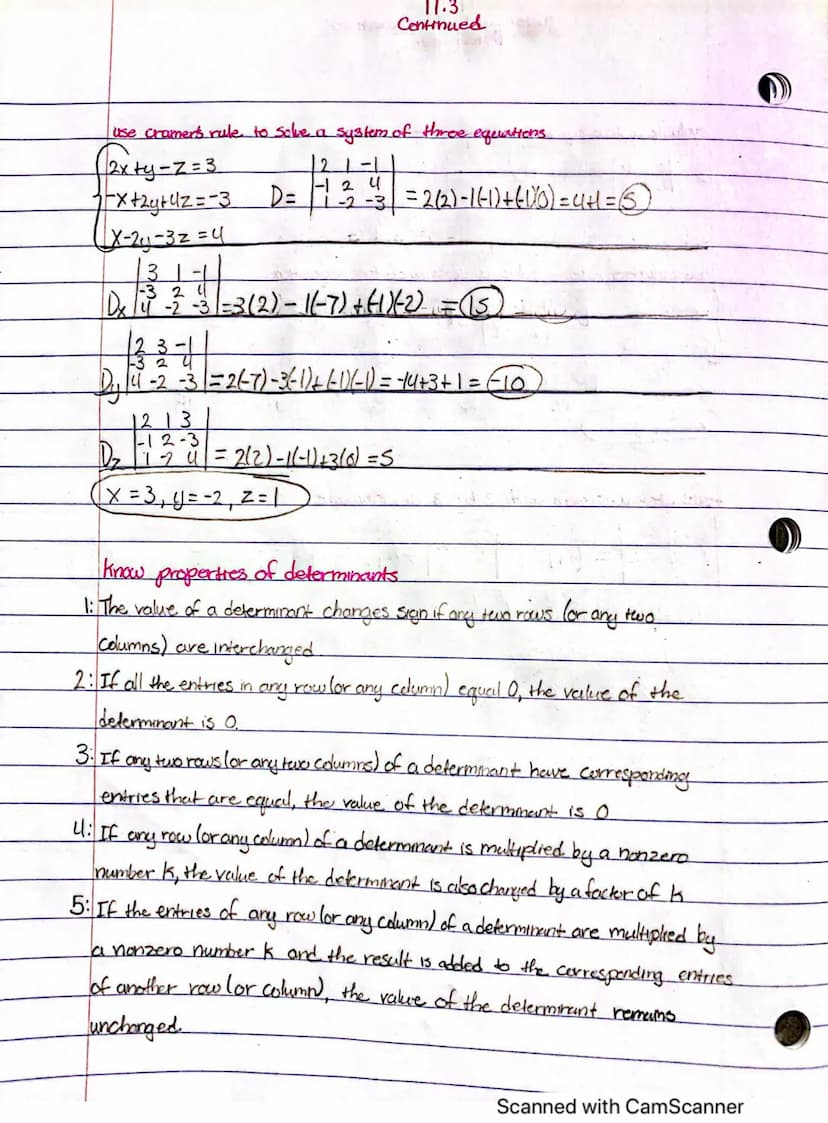 11.3
Continued
use cramer's rule to solve a system of three equations
2x+y-z=3
-x+2y+4z=-3
x-2y-3z=4
D= |2 1 -1|
|-1 2 4|
|1 -2 -3| = 2(2)-1(-1)+(-1)(0)=4+1=5
|3 1 -1|
|-3 2 4|
Dx |4 -2 -3| =3(2)-1(-7)+(-1)(-2) =15
|2 3 -1|
|-3 2 4|
Dy |4 -2 -3| =2(-7)-3(-1)+(-1)(-1)=-14+3+1=-10
|2 1 3|
|-1 2 -3|
Dz |1 -2 4| = 2(2)-1(-1)+3(0)=5
x=3, y=-2, z=1
know properties of determinants
1: The value of a determinant changes sign if any two rows (or any two
columns) are interchanged
2: If all the entries in any row (or any column) equal 0, the value of the
determinant is 0.
3: If any two rows (or any two columns) of a determinant have corresponding
entries that are equal, the value of the determinant is 0
4: If any row (or any column) of a determinant is multiplied by a nonzero
number k, the value of the determinant is also changed by a factor of k
5: If the entries of any row (or any column) of a determinant are multiplied by
a nonzero number k and the result is added to the corresponding entries
of another row (or column), the value of the determinant remains
unchanged.
Scanned with CamScanner